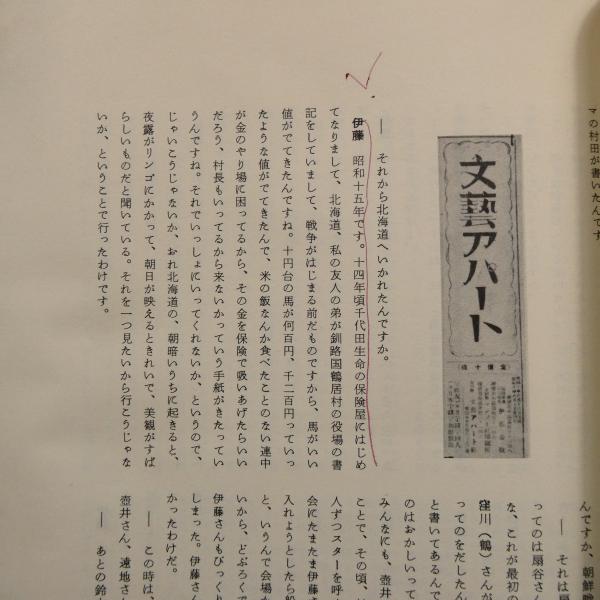 マの村田が書いたんです
文藝アパート
―― それから北海道へいかれたんですか。
伊藤 昭和十五年です。十四年頃千代田生命の保険屋にはじめ
てなりまして、北海道、私の友人の弟が釧路国鶴居村の役場の書
記をしていまして、戦争がはじまる前だものですから、馬がいい
値がでてきたんですね。十円台の馬が何百円、千二百円っていっ
たような値がでてきたんで、米の飯なんか食べたことのない連中
が金のやり場に困ってるから、その金を保険で吸いあげたらいい
だろう、村長もいってるから来ないかっていう手紙がきたってい
うんですね。それでいっしょにいってくれないか、というので、
じゃいこうじゃないか、おれ北海道の、朝暗いうちに起きると、
夜露がリンゴにかかって、朝日が映えるときれいで、美観がすば
らしいものだと聞いている。それを一つ見たいから行こうじゃな
いか、ということで行ったわけです。
んですか、朝鮮
―― それは
ってのは扇谷さん
な、これが最初の
窪川（鶴）さんが
ってのをだしたん
と書いてあるんで
のはおかしいって
みんなにも、壺井
ことで、その頃、
人ずつスターを呼
会にたまたま伊藤
入れようとしたら
と、いうんで会場か
いから、どぶろくで
伊藤さんもびっくり
しまった。伊藤さん
かったわけだ。
―― この時は、
壺井さん、遠地さん
―― あとの鈴